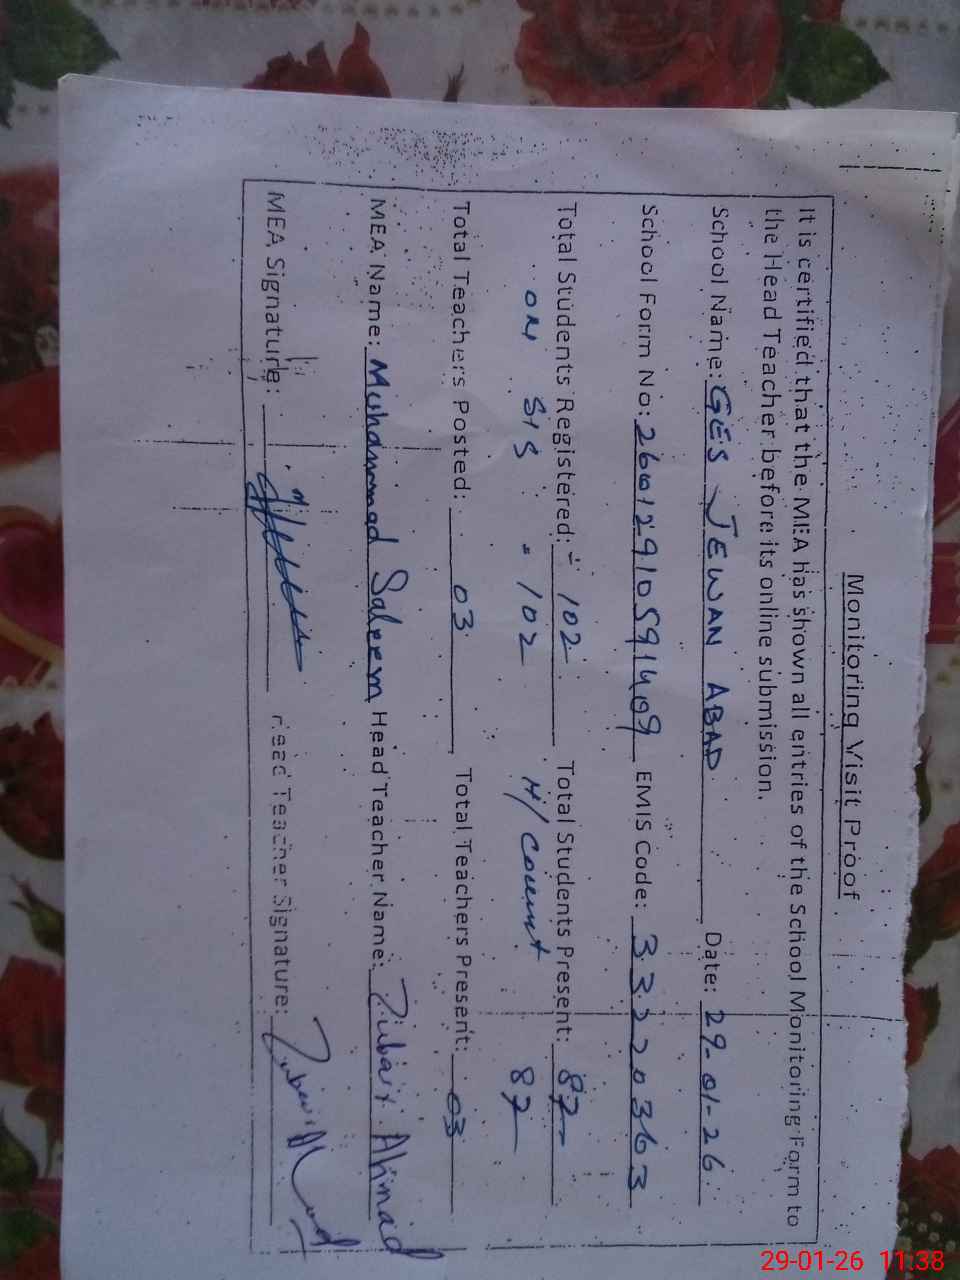 Monitoring Visit Proof
It is certified that the MEA has shown all entries of the School Monitoring Form to
the Head Teacher before its online submission.
School Name: GES JEWAN ABAD Date: 29-01-26
School Form No: 26012910591409 EMIS Code: 33220363
Total Students Registered: 102 Total Students Present: 87
ON SIS = 102 H/Count 87
Total Teachers Posted: 03 Total Teachers Present: 03
MEA Name: Muhammad Saleem Head Teacher Name: Zubair Ahmad
MEA Signature: Head Teacher Signature: Zubair Ahmad
29-01-26 11:38